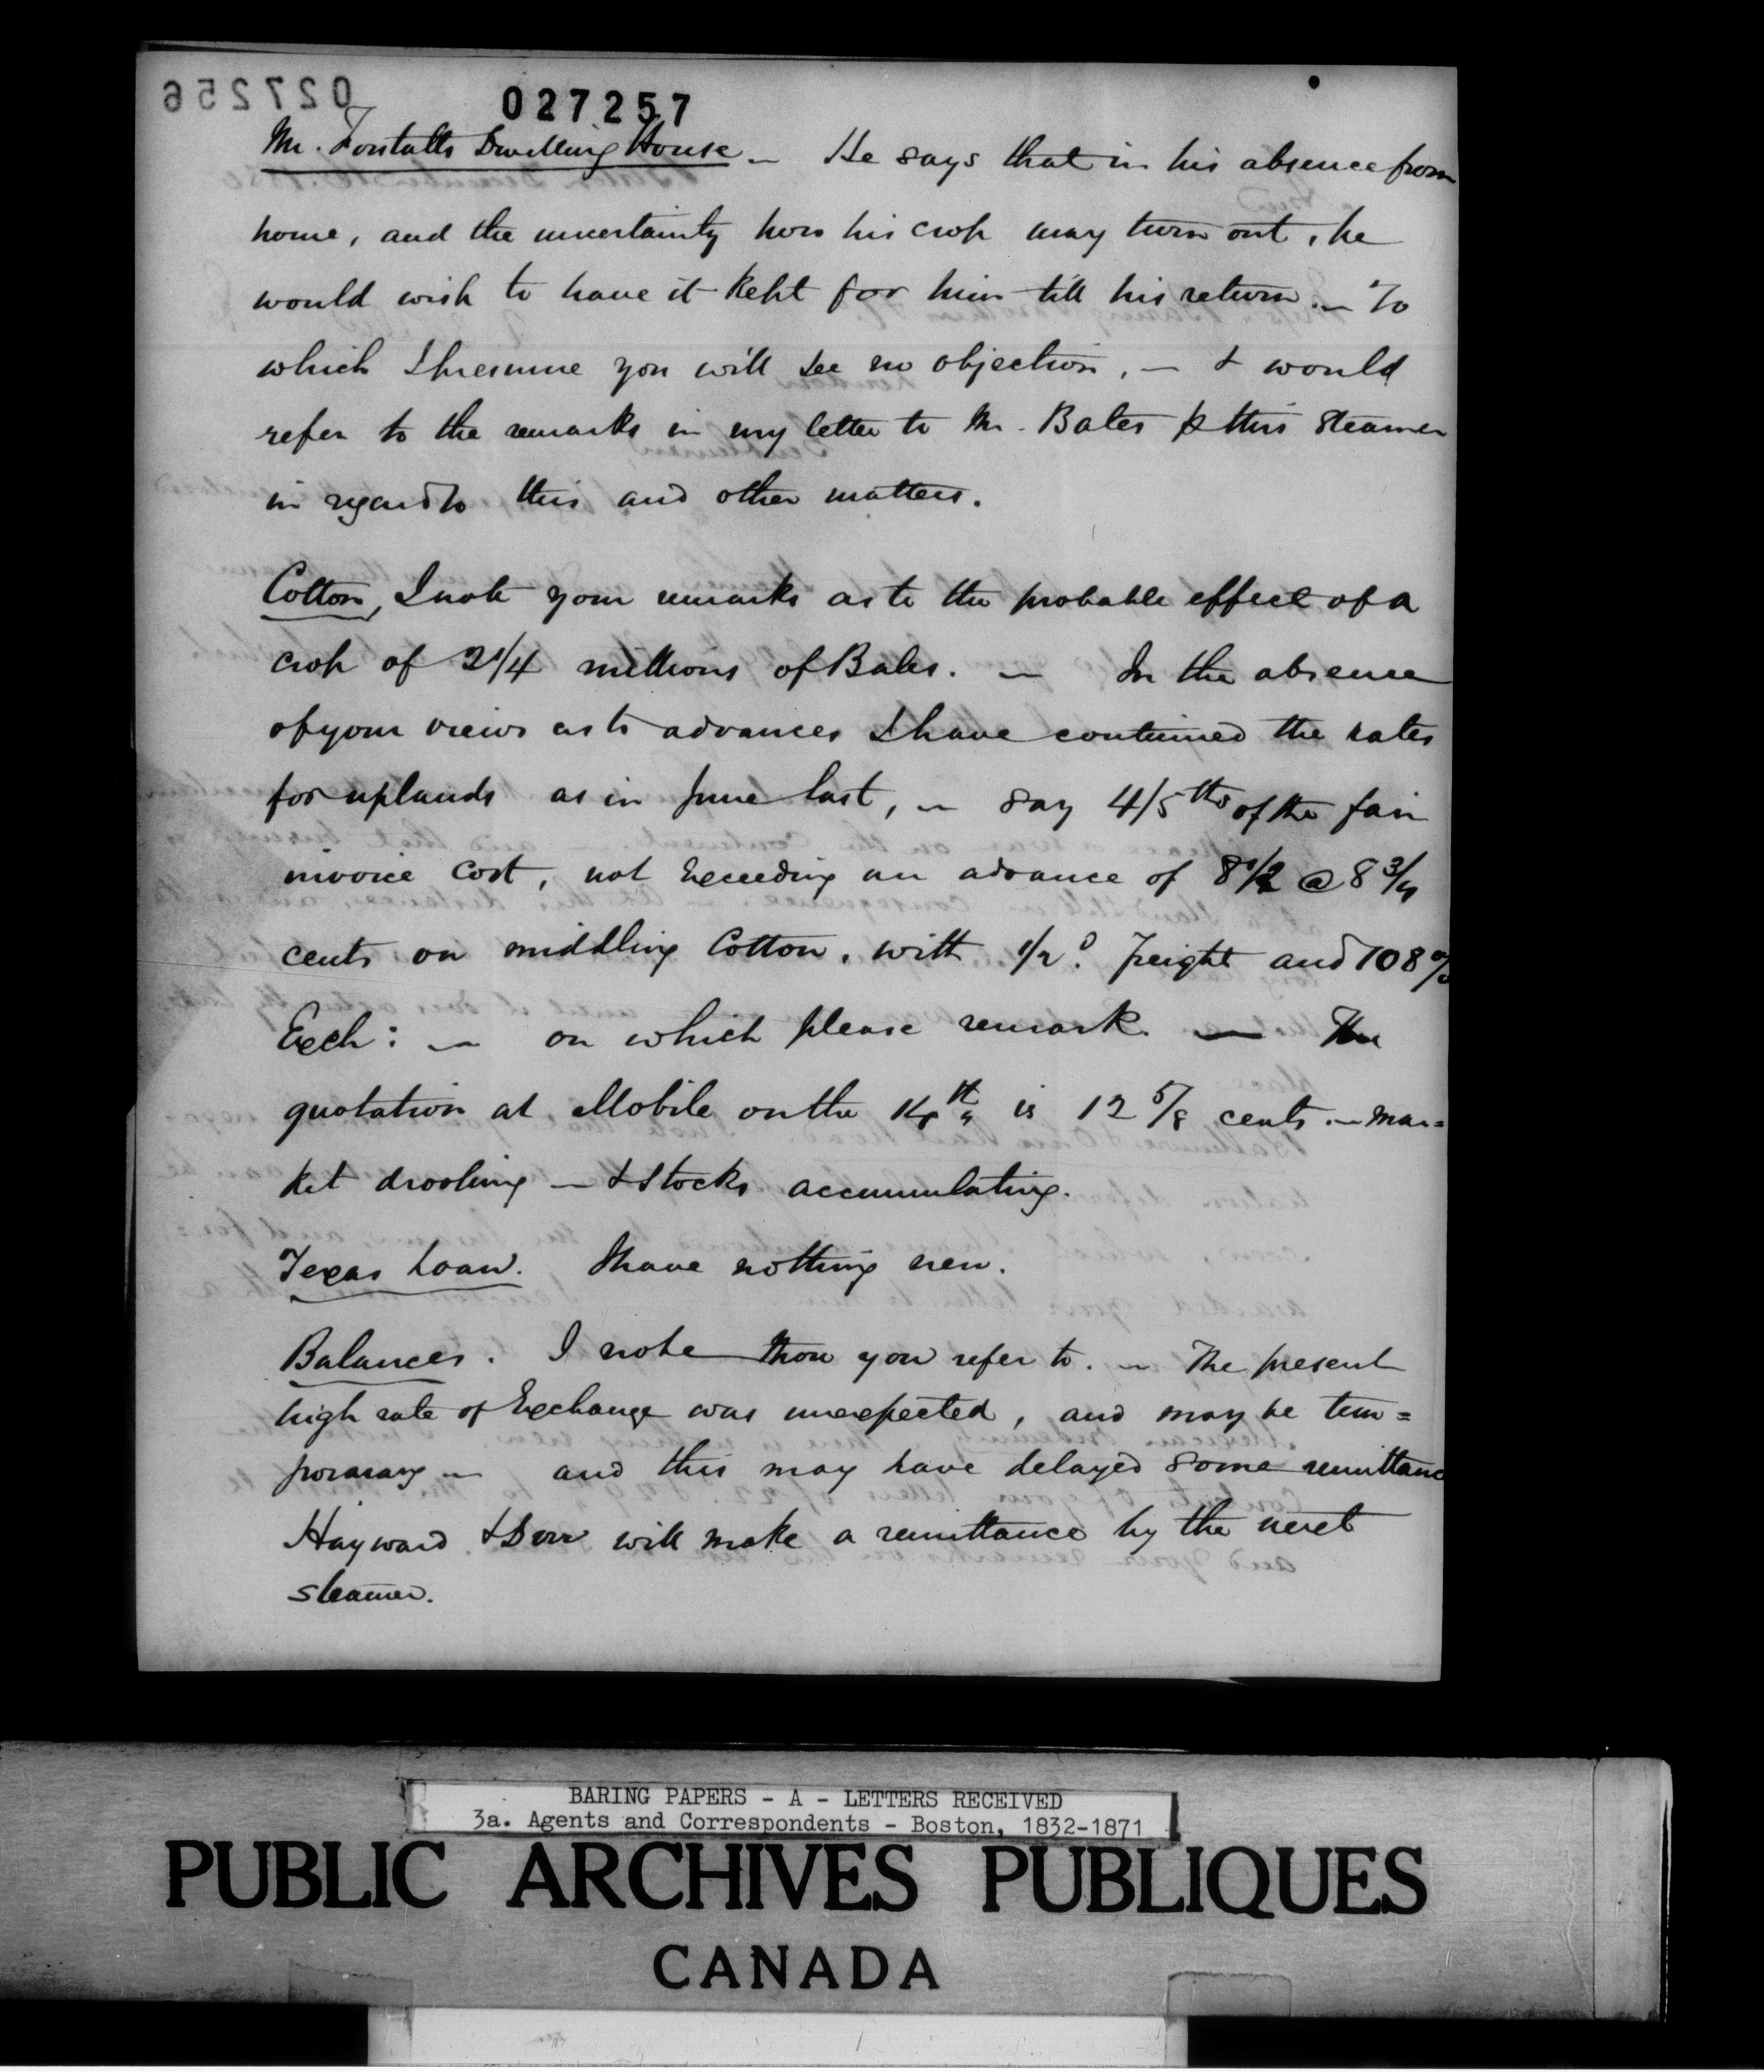 027256
027257
Mr. Forstalls Dwelling House. — He says that in his absence from
home, and the uncertainty how his crop may turn out, he
would wish to have it kept for him till his return. — To
which I presume you will see no objection, — & would
refer to the remarks in my letter to Mr. Bates p this Steamer
in regard to this and other matters.
Cotton, I note your remarks as to the probable effect of a
crop of 2 1/4 millions of Bales. — In the absence
of your views as to advances I have continued the rates
for uplands as in June last, — say 4/5ths of the fair
invoice cost, not exceeding an advance of 8 1/2 @ 8 3/4
cents on middling Cotton, with 1/2d. freight and 108%
Exch: — on which please remark. — The
quotation at Mobile on the 14th is 12 5/8 cents. — mar=
ket drooping — & stocks accumulating.
Texas Loan. I have nothing new.
Balances. I note those you refer to. — The present
high rate of Exchange was unexpected, and may be tem=
porarary — and this may have delayed some remittance
Hayward & Dorr will make a remittance by the next
steamer.
BARING PAPERS - A - LETTERS RECEIVED
3a. Agents and Correspondents - Boston, 1832-1871
PUBLIC ARCHIVES PUBLIQUES
CANADA